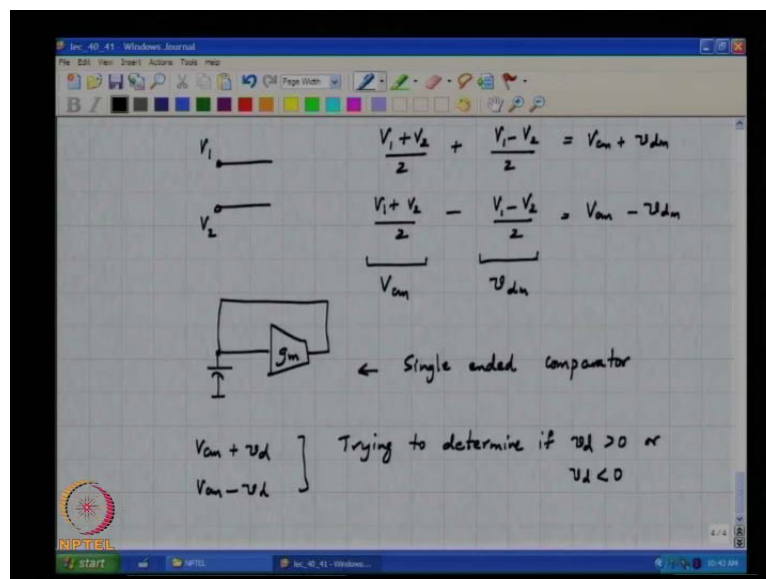 lec_40_41 - Windows Journal
File Edit View Insert Actions Tools Help
Page Width
B I
V₁ (V₁ + V₂)/2 + (V₁ - V₂)/2 = Vcm + vdm
V₂ (V₁ + V₂)/2 - (V₁ - V₂)/2 = Vcm - vdm
Vcm vdm
gm ← Single ended comparator
Vcm + vd ] Trying to determine if vd > 0 or
Vcm - vd vd < 0
4/4
NPTEL
start NPTEL lec_40_41 - Windows... 10:43 AM